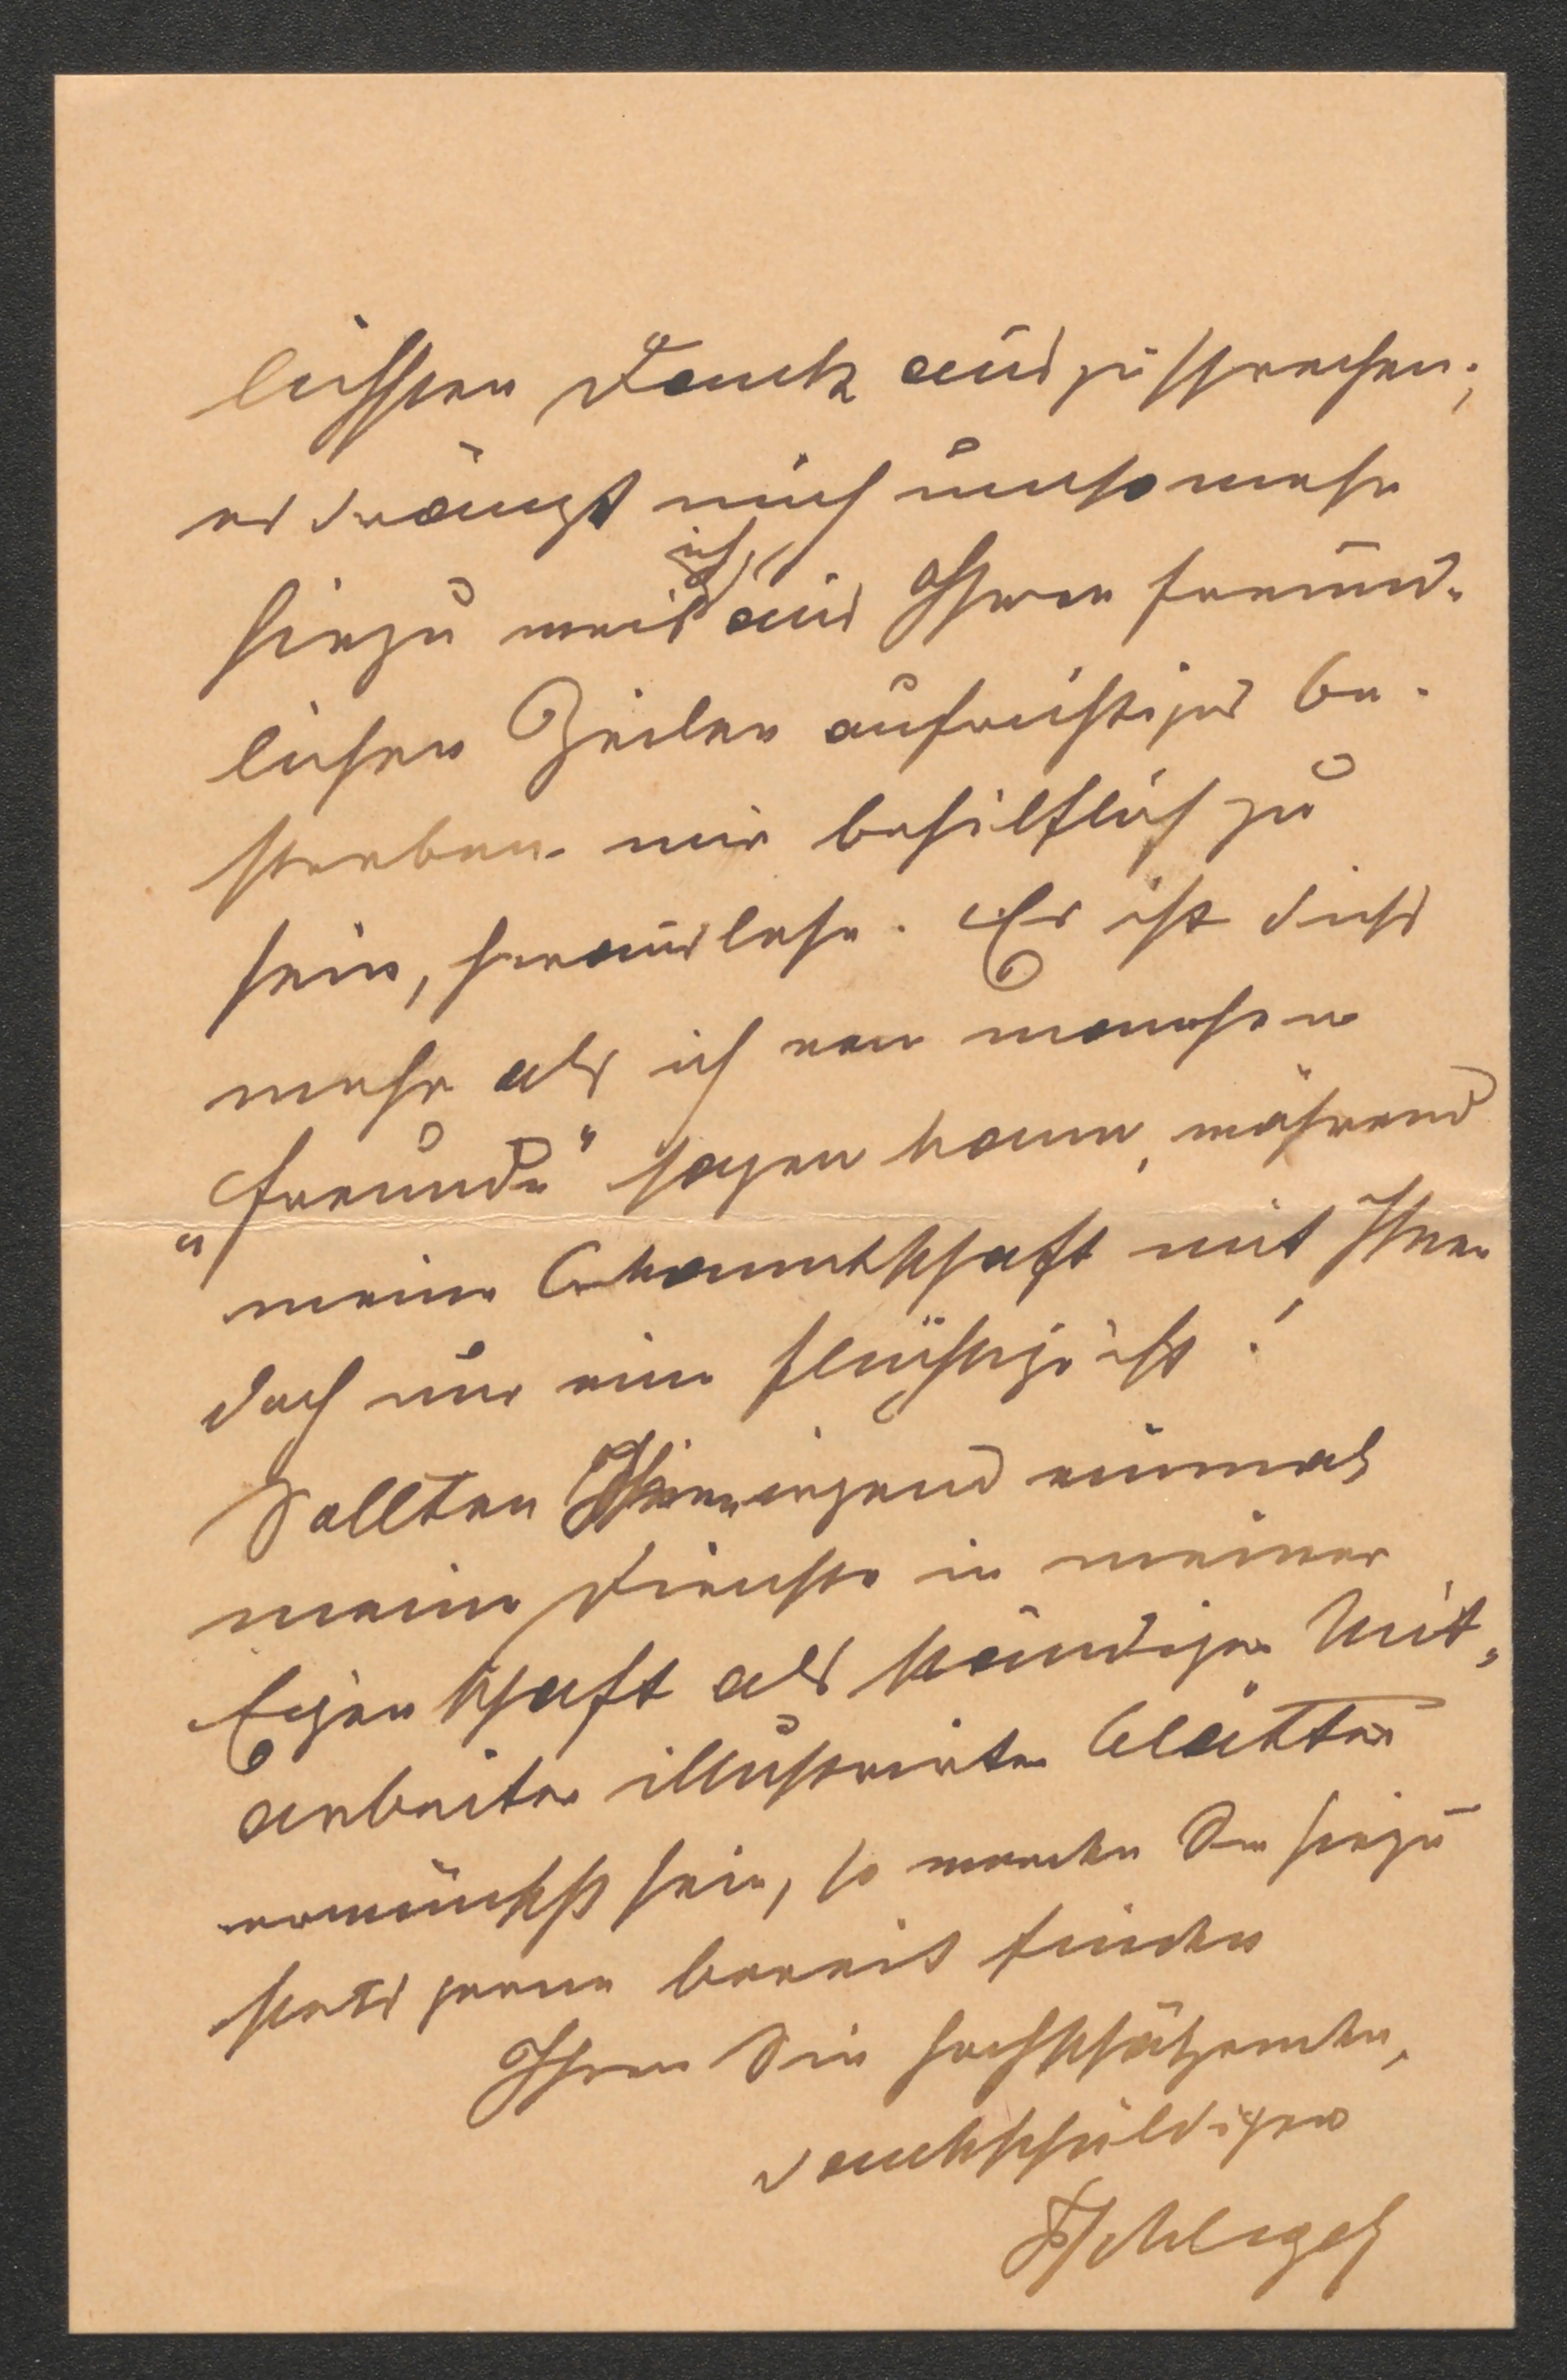 lichsten Dank auszusprechen;
es drängt mich umsomehr
hiezu weil ich aus Ihren freund-
lichen Zeilen aufrichtiges Be-
streben mir behilflich zu
sein, herauslese. Es ist dies
mehr als ich von manchem
„Freunde“ sagen kann, während
meine Bekanntschaft mit Ihnen
doch nur eine flüchtige ist!
Sollten Ihnen irgend einmal
meine Dienste in meiner
Eigenschaft als ständiger Mit-
arbeiter illustrirter Blätter
erwünscht sein, so werden Sie hiezu
stets gerne bereit finden
Ihren Sie hochschätzenden,
dankschuldigen
Schlegel